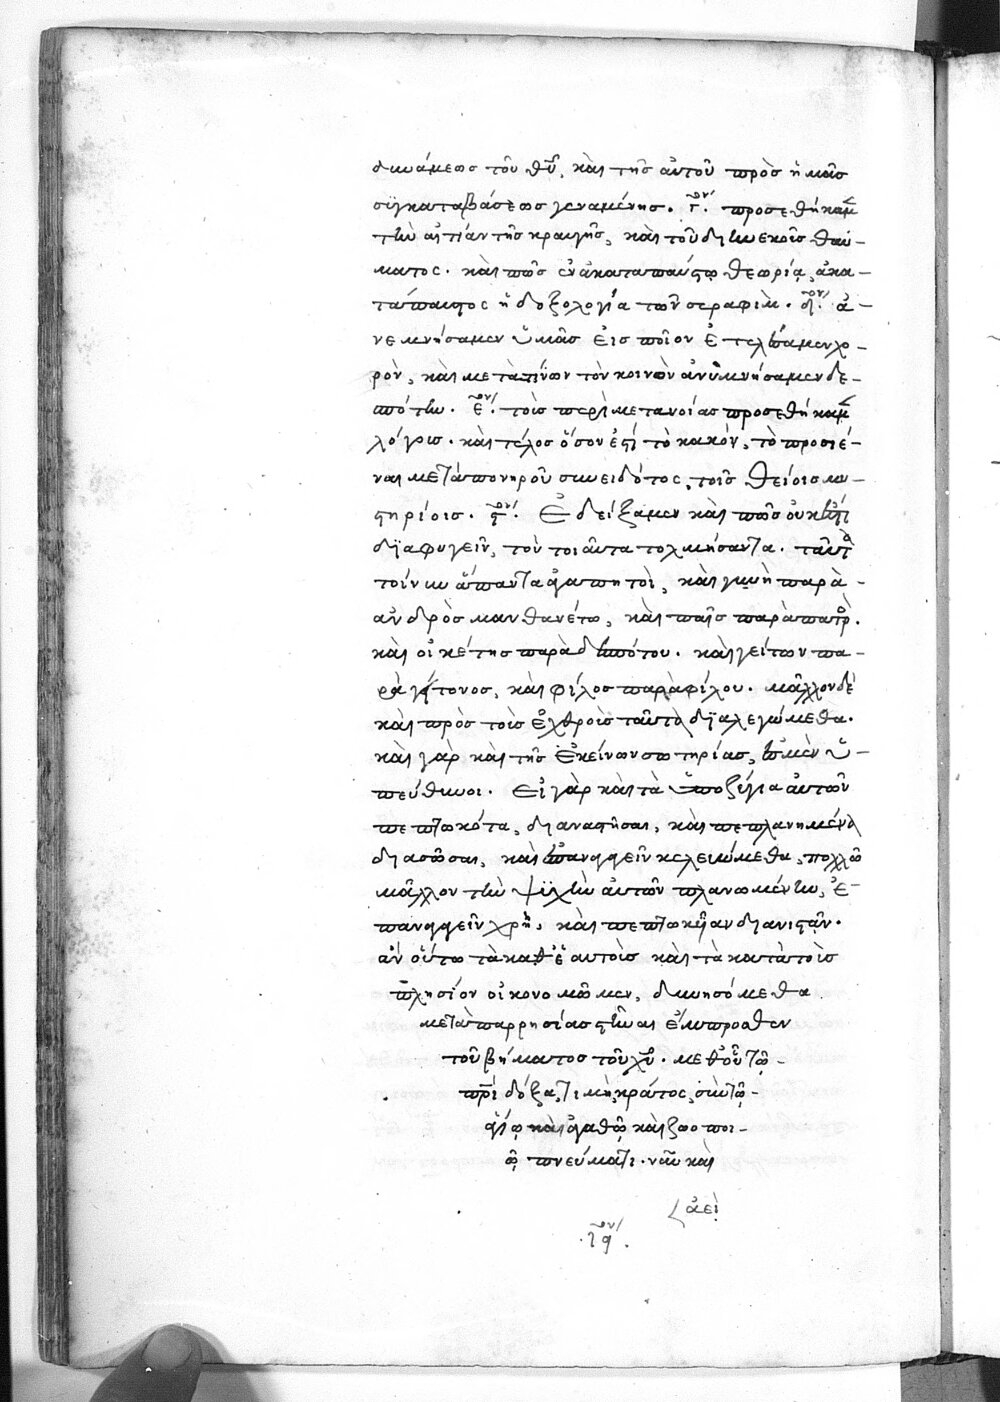 δυνάμεως τοῦ θῦ, καὶ τῆς αὐτοῦ πρὸς ἡμᾶς
συγκαταβάσεως γεναμένης. γ̅ον. προσεθήκαμ
τὴν αἰτίαν τῆς κραυγῆς, καὶ τοῦ διηνεκοῖς θαύ-
ματος. καὶ πῶς ἐν ἀκαταπαύστω θεωρία, ἀκα-
τάπαυστος ἡ δοξολογία τῶν σεραφίμ. δ̅ον. ἀ-
νεμνήσαμεν ὑμᾶς εἰς ποῖον ἐτελέσαμεν χο-
ρὸν, καὶ μετὰ τίνων τὸν κοινὸν ἀνυμνήσαμεν δε-
σπότην. ε̅ον. τοῖς περὶ μετανοίας προσεθήκαμ
λόγοις. καὶ τέλος ὅσον ἐστὶ τὸ κακόν, τὸ προσιέ-
ναι μετὰ πονηροῦ συνειδότος, τοῖς θείοις μυ-
στηρίοις. ϛ̅ον. Ἐδείξαμεν καὶ πῶς οὐκ ἔστι
διαφυγεῖν, τὸν τοιαῦτα τολμήσαντα. ταῦτ
τοίνυν ἅπαντα ἀγαπητοὶ, καὶ γυνὴ παρὰ -
ἀνδρὸς μανθανέτω, καὶ παῖς παρὰ πατρ.
καὶ οἰκέτης παρὰ δεσπότου. καὶ γείτων πα-
ρὰ γείτονος, καὶ φίλος παρὰ φίλου. μᾶλλον δὲ
καὶ πρὸς τοῖς ἐχθροῖς ταῦτα διαλεγώμεθα.
καὶ γὰρ καὶ τῆς ἐκείνων σωτηρίας, ἐσμὲν ὑ-
πεύθυνοι. Εἰ γὰρ καὶ τὰ ὑποζύγια αὐτῶν
πεπτωκότα, διαναστῆσαι, καὶ πεπλανημένα
διασῶσαι, καὶ ἐπανάγειν κελευώμεθα, πολλῶ
μᾶλλον τὴν ψυχὴν αὐτῶν πλανωμένην, ἐ-
πανάγειν χρὴ, καὶ πεπτωκυῖαν διανιστᾶν.
ἂν οὕτω τὰ καθ' ἑαυτοῖς καὶ τὰ κατὰ τοῖς
πλησίον οἰκονομῶμεν, δυνησόμεθα
μετὰ παρρησίας στῆναι ἔμπροσθεν
τοῦ βήματος τοῦ χῦ. μεθ' οὗ τῶ -
πρὶ δόξα, τιμὴ, κράτος, σὺν τῶ -
ἁγίω καὶ ἀγαθῶ καὶ ζωοποι-
ῶ πνεύματι. νῦν καὶ
ἀεὶ